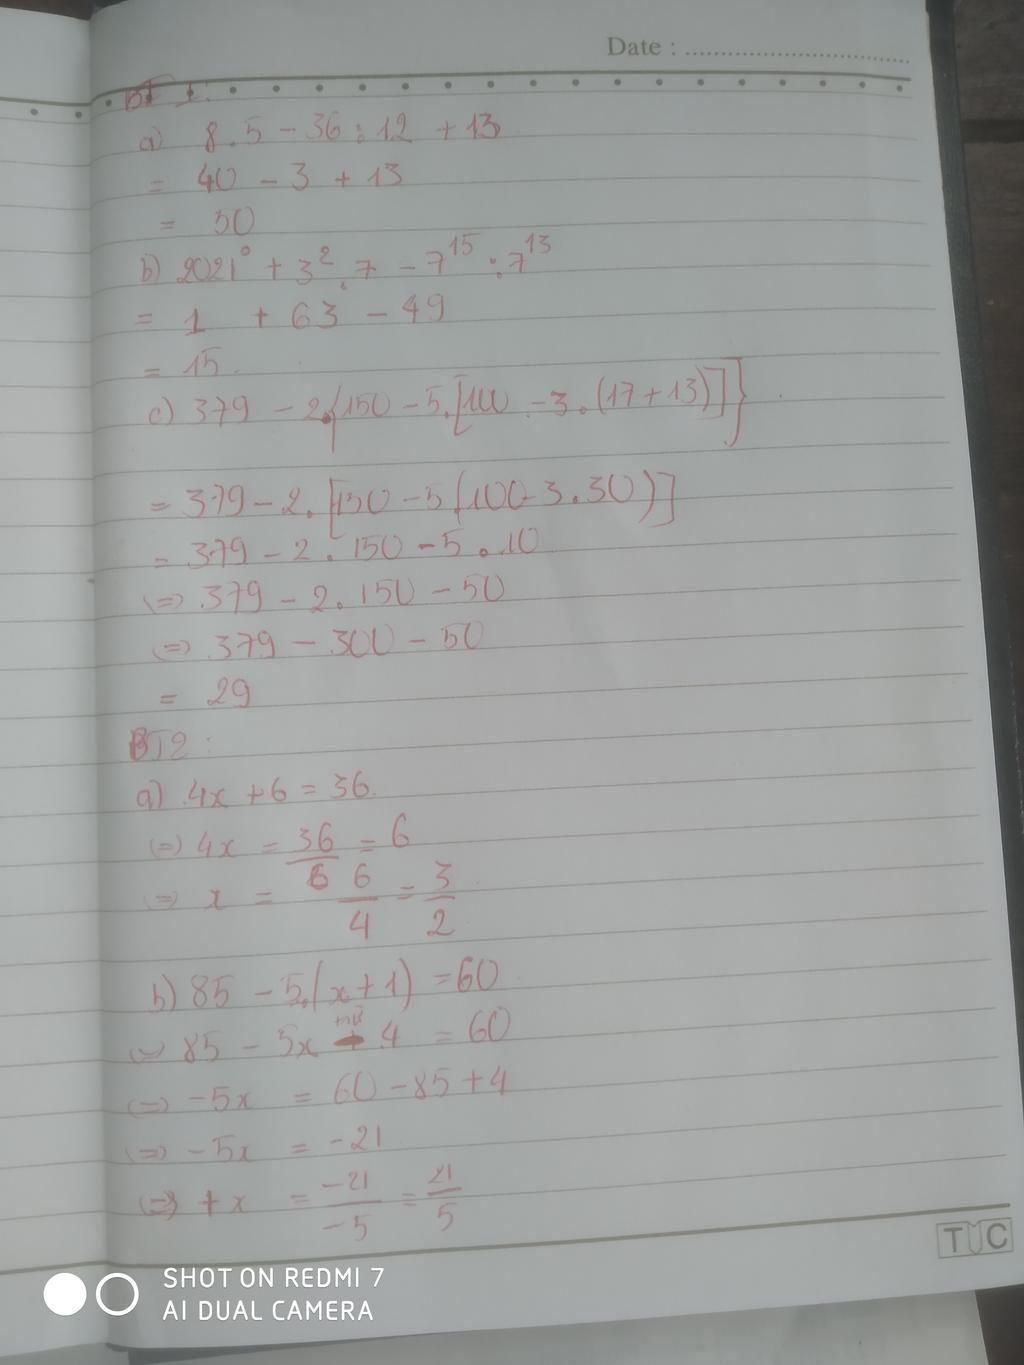 Date : ........................................
BT 1:
a) 8.5 - 36 : 12 + 13
= 40 - 3 + 13
= 50
b) 2021⁰ + 3² . 7 - 7¹⁵ : 7¹³
= 1 + 63 - 49
= 15.
c) 379 - 2.{150 - 5.[100 - 3.(17+13)]}
= 379 - 2.[150 - 5(100-3.30)]
= 379 - 2 . 150 - 5 . 10
(=) 379 - 2. 150 - 50
(=) 379 - 300 - 50
= 29
BT2 :
a) 4x + 6 = 36.
(=) 4x = 36/6 = 6
(=) x = 6/4 = 3/2
b) 85 - 5.(x+1) = 60
(=) 85 - 5x - 4 = 60
(=) -5x = 60 - 85 + 4
(=) -5x = -21
(=) + x = -21/-5 = 21/5
TUC
SHOT ON REDMI 7
AI DUAL CAMERA